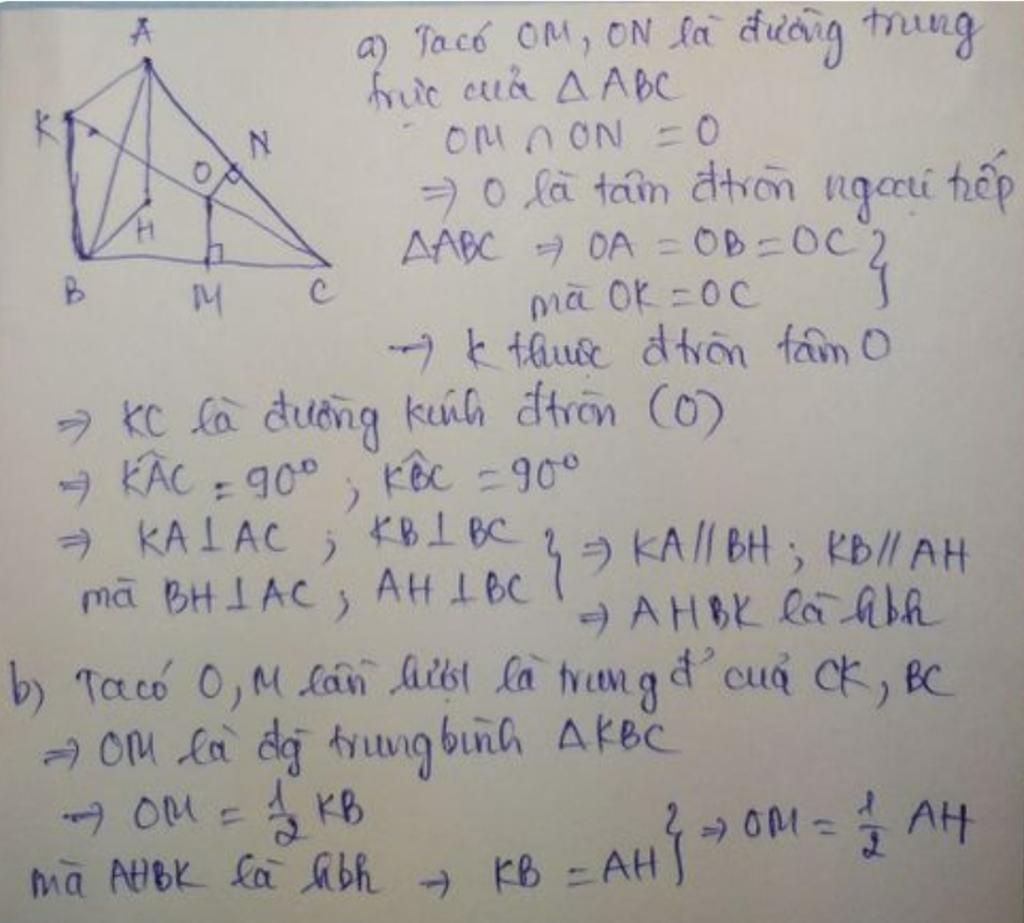 A
K
N
O
H
B
M
C
a) Ta có OM, ON là đường trung
trực của ΔABC
OM ∩ ON = O
⇒ O là tâm đtròn ngoại tiếp
ΔABC ⇒ OA = OB = OC }
mà OK = OC
→ K thuộc đtròn tâm O
⇒ KC là đường kính đtròn (O)
⇒ KÂC = 90° ; KB̂C = 90°
⇒ KA ⊥ AC ; KB ⊥ BC } ⇒ KA // BH ; KB // AH
mà BH ⊥ AC ; AH ⊥ BC
⇒ AHBK là hbh
b) Ta có O, M lần lượt là trung đ' của CK, BC
⇒ OM là đg trung bình ΔKBC
→ OM = 1/2 KB
mà AHBK là hbh → KB = AH } ⇒ OM = 1/2 AH